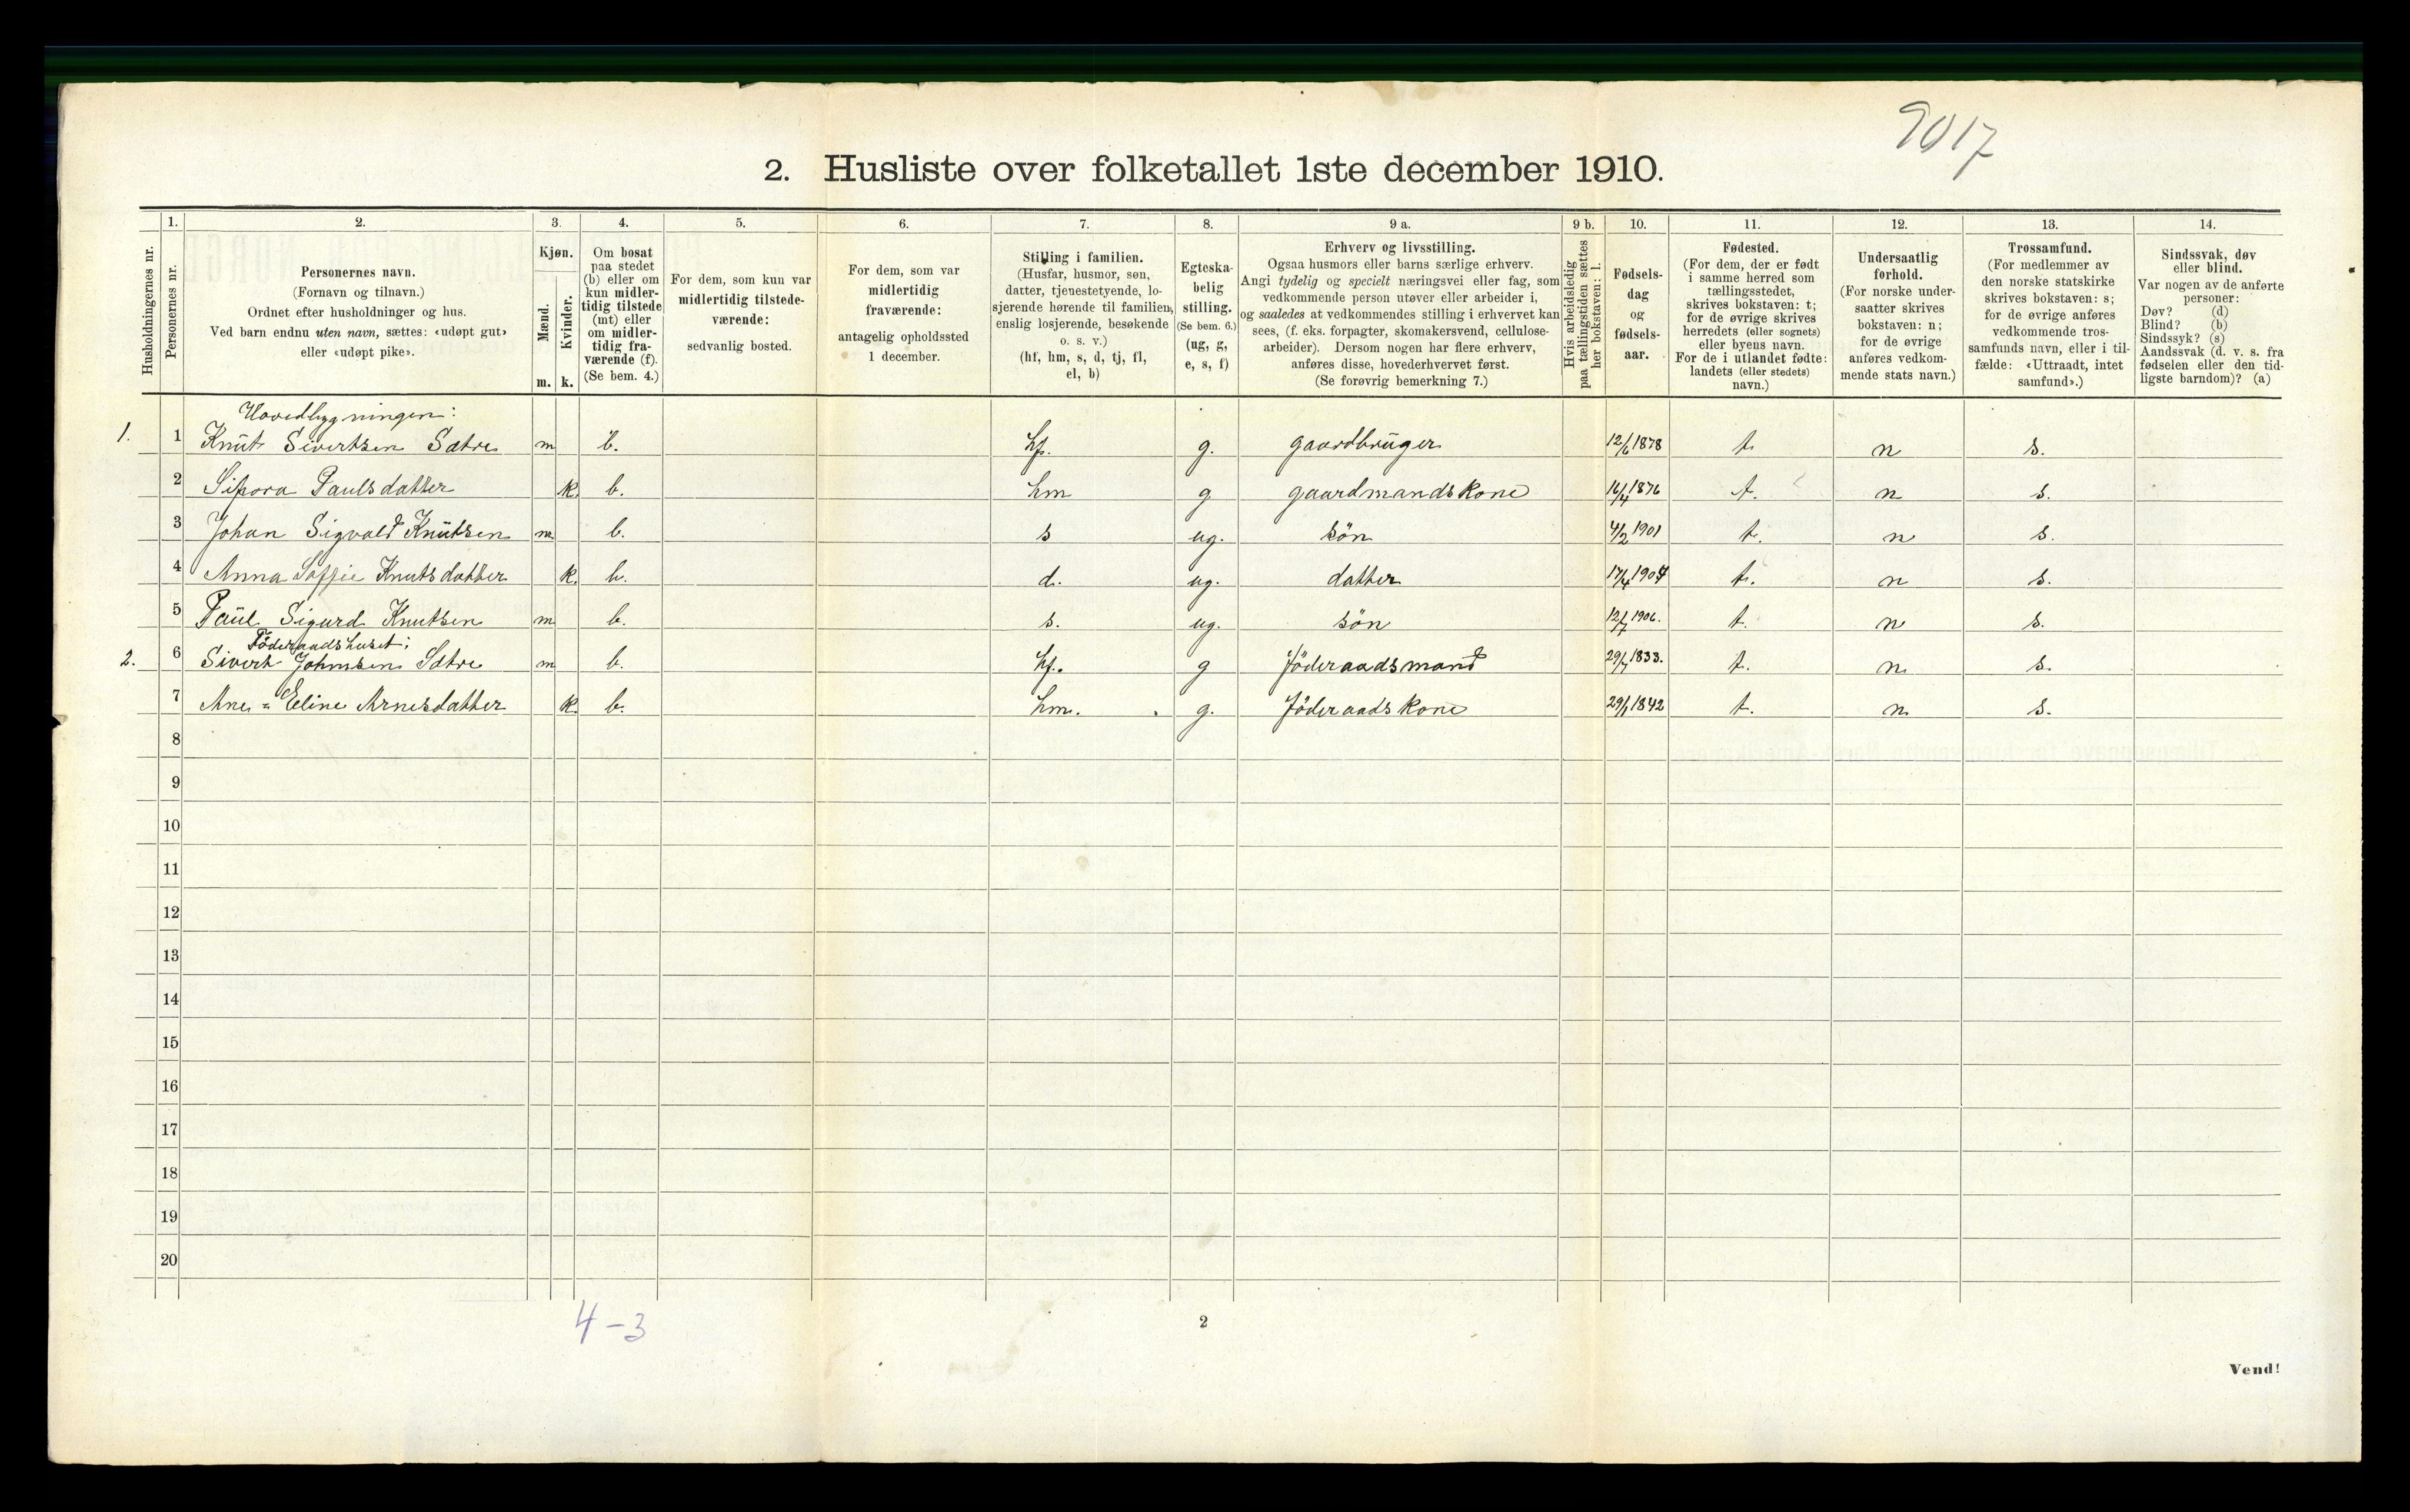 9017
2. Husliste over folketallet 1ste december 1910.
Husholdningernes nr.
1.
Personernes nr.
2.
Personernes navn.
(Fornavn og tilnavn.)
Ordnet efter husholdninger og hus.
Ved barn endnu uten navn, sættes: «udøpt gut»
eller «udøpt pike».
3.
Kjøn.
Mænd.
m.
Kvinder.
k.
4.
Om bosat
paa stedet
(b) eller om
kun midler-
tidig tilstede
(mt) eller
om midler-
tidig fra-
værende (f).
(Se bem. 4.)
5.
For dem, som kun var
midlertidig tilstede-
værende:
sedvanlig bosted.
6.
For dem, som var
midlertidig
fraværende:
antagelig opholdssted
1 december.
7.
Stilling i familien.
(Husfar, husmor, søn,
datter, tjenestetyende, lo-
sjerende hørende til familien,
enslig losjerende, besøkende
o. s. v.)
(hf, hm, s, d, tj, fl,
el, b)
8.
Egteska-
belig
stilling.
(Se bem. 6.)
(ug, g,
e, s, f)
9 a.
Erhverv og livsstilling.
Ogsaa husmors eller barns særlige erhverv.
Angi tydelig og specielt næringsvei eller fag, som
vedkommende person utøver eller arbeider i,
og saaledes at vedkommendes stilling i erhvervet kan
sees, (f. eks. forpagter, skomakersvend, cellulose-
arbeider). Dersom nogen har flere erhverv,
anføres disse, hovederhvervet først.
(Se forøvrig bemerkning 7.)
9 b.
Hvis arbeidsledig
paa tællingstiden sættes
her bokstaven: l.
10.
Fødsels-
dag
og
fødsels-
aar.
11.
Fødested.
(For dem, der er født
i samme herred som
tællingsstedet,
skrives bokstaven: t;
for de øvrige skrives
herredets (eller sognets)
eller byens navn.
For de i utlandet fødte:
landets (eller stedets)
navn.)
12.
Undersaatlig
forhold.
(For norske under-
saatter skrives
bokstaven: n;
for de øvrige
anføres vedkom-
mende stats navn.)
13.
Trossamfund.
(For medlemmer av
den norske statskirke
skrives bokstaven: s;
for de øvrige anføres
vedkommende tros-
samfunds navn, eller i til-
fælde: «Uttraadt, intet
samfund».)
14.
Sindssvak, døv
eller blind.
Var nogen av de anførte
personer:
Døv? (d)
Blind? (b)
Sindssyk? (s)
Aandssvak (d. v. s. fra
fødselen eller den tid-
ligste barndom)? (a)
Hovedbygningen:
1. 1 Knut Sivertsen Sætre m b. hf. g. gaardbruger 12/6 1878 t. n s.
2 Sipora Paulsdatter k. b. hm g gaardmandskone 16/4 1876 t. n s.
3 Johan Sigvald Knutsen m b. s ug. søn 4/2 1901 t. n s.
4 Anna Soffie Knutsdatter k. b. d. ug. datter 17/4 1904 t. n s.
5 Paul Sigurd Knutsen m b. s. ug. søn 12/7 1906. t. n s.
Föderaadshuset:
2. 6 Sivert Johnsen Sætre m b. hf. g föderaadsmand 29/7 1833. t. n s.
7 Ane = Eline Arnesdatter k. b. hm. g. föderaadskone 29/1 1842 t. n s.
8
9
10
11
12
13
14
15
16
17
18
19
20
4-3
2
Vend!